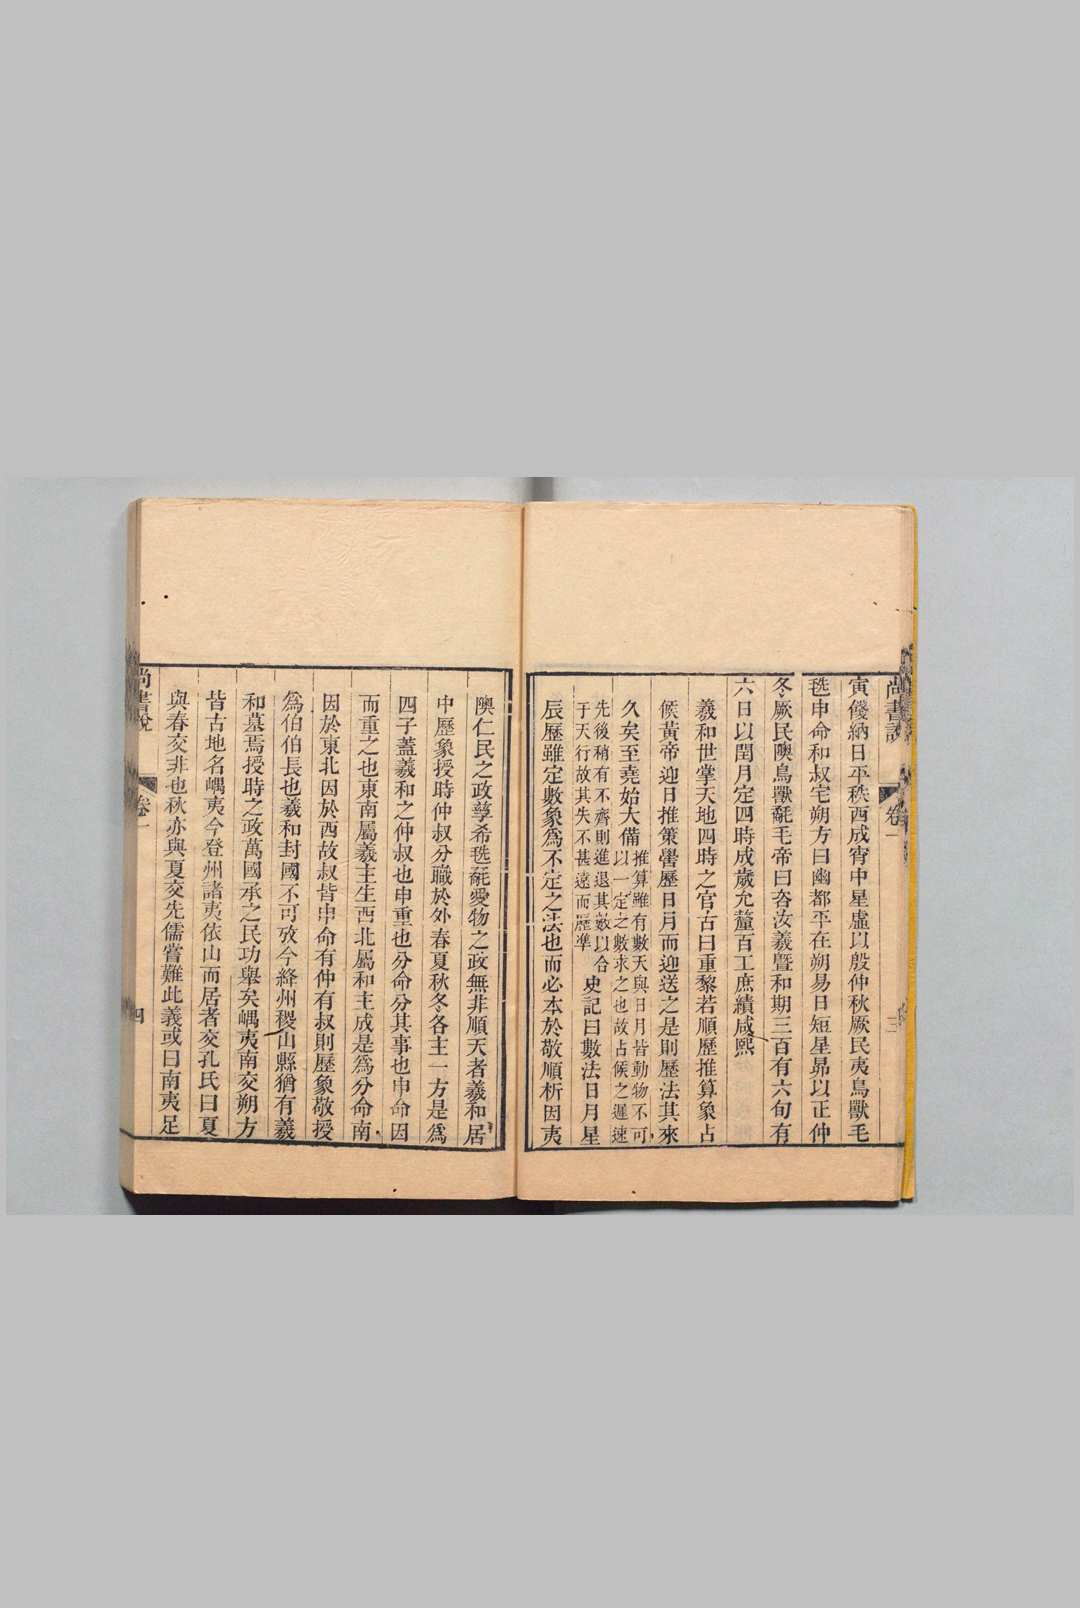 尚書說 卷一 三
寅餞納日平秩西成宵中星虛以殷仲秋厥民夷鳥獸毛
毨申命和叔宅朔方曰幽都平在朔易日短星昴以正仲
冬厥民隩鳥獸氄毛帝曰咨汝羲暨和期三百有六旬有
六日以閏月定四時成歲允釐百工庶績咸熙
羲和世掌天地四時之官古曰重黎若順歷推算象占
候黃帝迎日推策嚳歷日月而迎送之是則歷法其來
久矣至堯始大備推算雖有數天與日月皆動物不可
以一定之數求之也故占候之遲速
先後稍有不齊則進退其數以合
于天行故其失不甚遠而歷準
史記曰數法日月星
辰歷雖定數象爲不定之法也而必本於敬順析因夷
隩仁民之政孳希毨氄愛物之政無非順天者羲和居
中歷象授時仲叔分職於外春夏秋冬各主一方是爲
四子蓋羲和之仲叔也申重也分命分其事也申命因
而重之也東南屬羲主生西北屬和主成是爲分命南
因於東北因於西故叔皆申命有仲有叔則歷象敬授
爲伯伯長也羲和封國不可攷今絳州稷山縣猶有羲
和墓焉授時之政萬國承之民功舉矣嵎夷南交朔方
皆古地名嵎夷今登州諸夷依山而居者交孔氏曰夏
與春交非也秋亦與夏交先儒嘗難此義或曰南夷足
尚書說 卷一 四